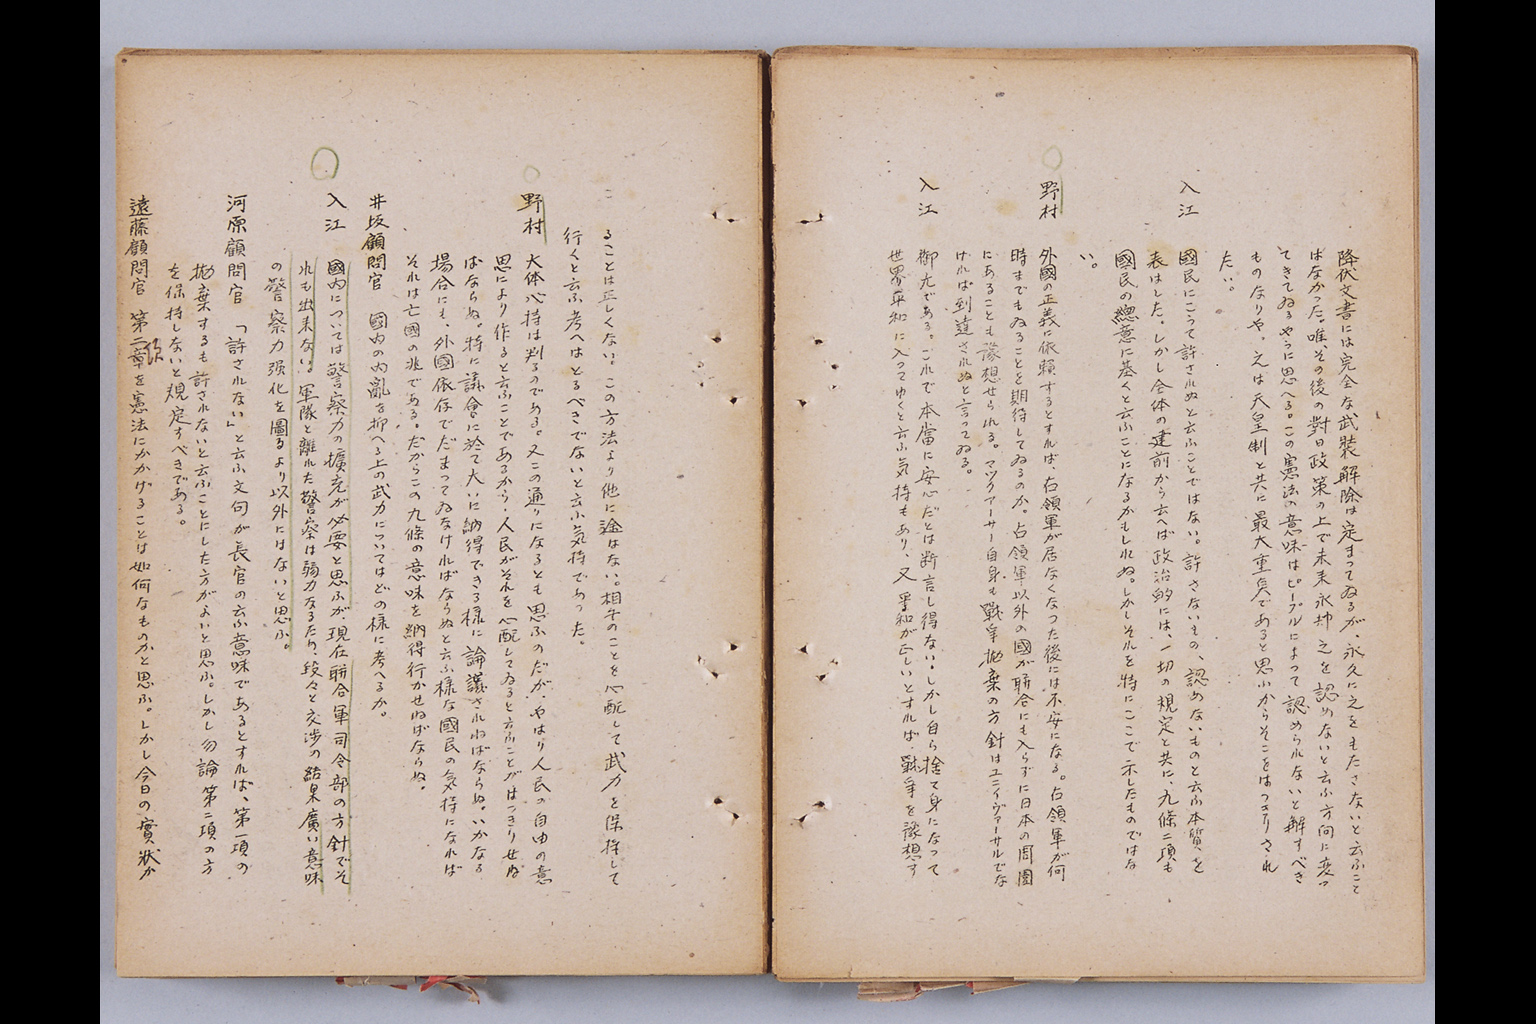 降伏文書には完全な武装解除は定まってゐるが、永久に之をもたさないと云ふこと
ばなかった。唯、その後の對日政策の上で未来永劫之を認めないと云ふ方向に変っ
てきてゐるやうに思へる。この憲法の意味はピープルによって認められないと解すべき
ものなりや。之は天皇制と共に最大重点であると思ふからそこをはっきりされ
たい。
入江
国民にとって許されぬと云ふことではない。許さないもの、認めないものと云ふ本質を
表はした。しかし全体の建前から云へば政治的には、一切の規定と共に、九條二項も
國民の總意に基くと云ふことになるかもしれぬ。しかしそれを特にここで示したものではな
い。
野村
外國の正義に依頼するとすれば、占領軍が居なくなった後には不安になる。占領軍が何
時までもゐることを期待してゐるのか。占領軍以外の國が聯合にも入らずに日本の周圍
にあることも豫想せられる。マックアーサー自身も戦争抛棄の方針はユニイヴァーサルでな
ければ到達されぬと言ってゐる。
入江
御尤である。これで本當に安心だとは断言し得ない。しかし自ら捨て身になって
世界平和に入ってゆくと云ふ気持もあり、又平和が正しいとすれば、戦争を豫想す
ることは正しくない。この方法より他に途はない。相手のことを心配して武力を保持して
行くと云ふ考へはとるべきでないと云ふ気持であった。
野村 大体心持は判るのである。又この通りになるとも思ふのだが、やはり人民の自由の意
思により作ると云ふことであるから、人民がそれを心配してゐると云ふことがはっきりせね
ばならぬ。特に議會に於て大いに納得できる様に論議されねばならぬ。いかなる
場合にも、外國依存でだまってゐなければならぬと云ふ様な國民の気持になれば
それは亡國の兆である。だからこの九條の意味を納得行かせねばならぬ。
井坂顧問官 國内の内亂を抑へる上の武力についてはどの様に考へるか。
入江 國内については警察力の擴充が必要と思ふが、現在聯合軍司令部の方針でそ
れも出来ない。軍隊と離れた警察は弱力なるため、段々と交渉の結果廣い意味
の警察力强化を圖るより以外にはないと思ふ。
河原顧問官 「許されない」と云ふ文句が長官の云ふ意味であるとすれば、第一項の
抛棄するも許されないと云ふことにした方がよいと思ふ。しかし勿論第二項の方
を保持しないと規定すべきである。
遠藤顧問官 第二章を憲法にかかげることは如何なものかと思ふ。しかし今日の實状か